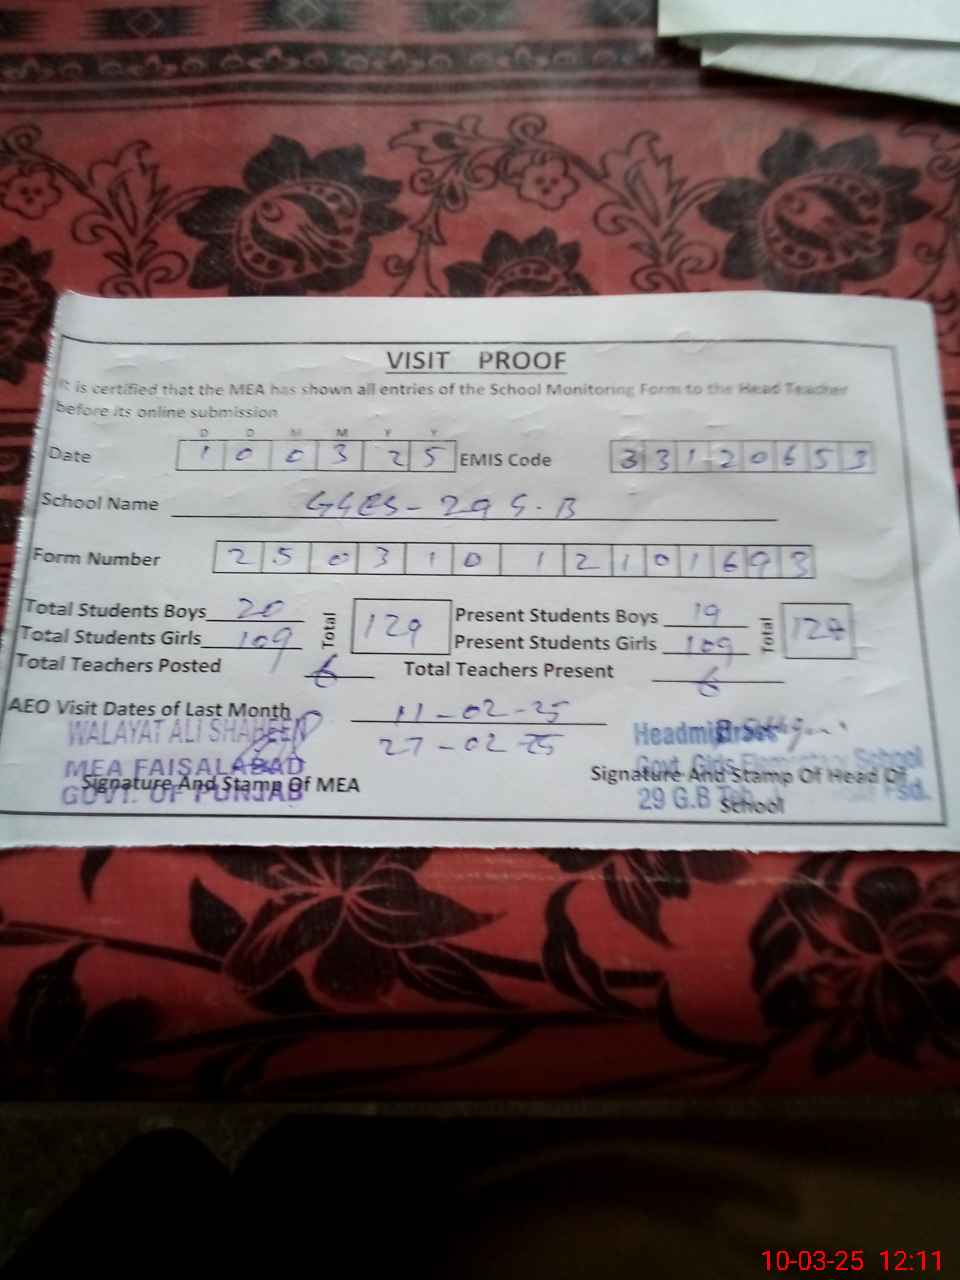 VISIT PROOF
It is certified that the MEA has shown all entries of the School Monitoring Form to the Head Teacher
before its online submission
D D M M Y Y
Date 1 0 0 3 2 5 EMIS Code 3 3 1 2 0 6 5 3
School Name GGES - 29 G.B
Form Number 2 5 0 3 1 0 1 2 1 0 1 6 9 3
Total Students Boys 20 Total 129 Present Students Boys 19 Total 128
Total Students Girls 109 Present Students Girls 109
Total Teachers Posted 6 Total Teachers Present 6
AEO Visit Dates of Last Month 11-02-25
27-02-25
WALAYAT ALI SHAHEEN
MEA FAISALABAD
GOVT. OF PUNJAB
Signature And Stamp Of MEA
Govt. Girls Elementary School
29 G.B Fsd.
Signature And Stamp Of Head Of
School
10-03-25 12:11